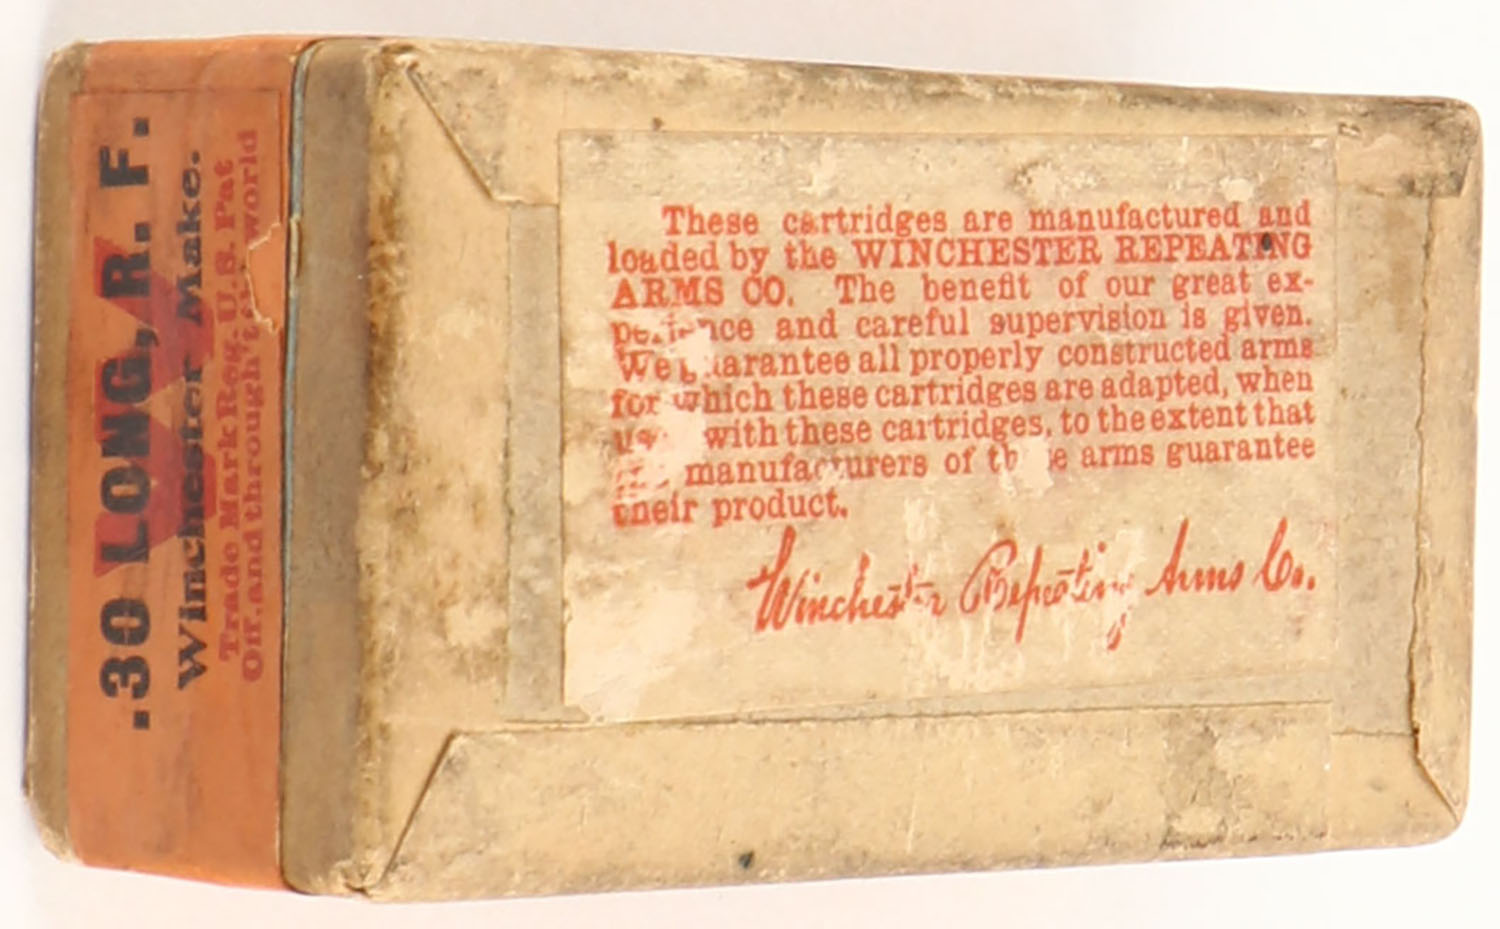 .30 LONG, R. F.
Winchester Make.
Trade Mark Reg. U. S. Pat
Off. and throughout world
These cartridges are manufactured and
loaded by the WINCHESTER REPEATING
ARMS CO. The benefit of our great ex-
perience and careful supervision is given.
We guarantee all properly constructed arms
for which these cartridges are adapted, when
with these cartridges, to the extent that
manufacturers of these arms guarantee
their product.
Winchester Repeating Arms Co.